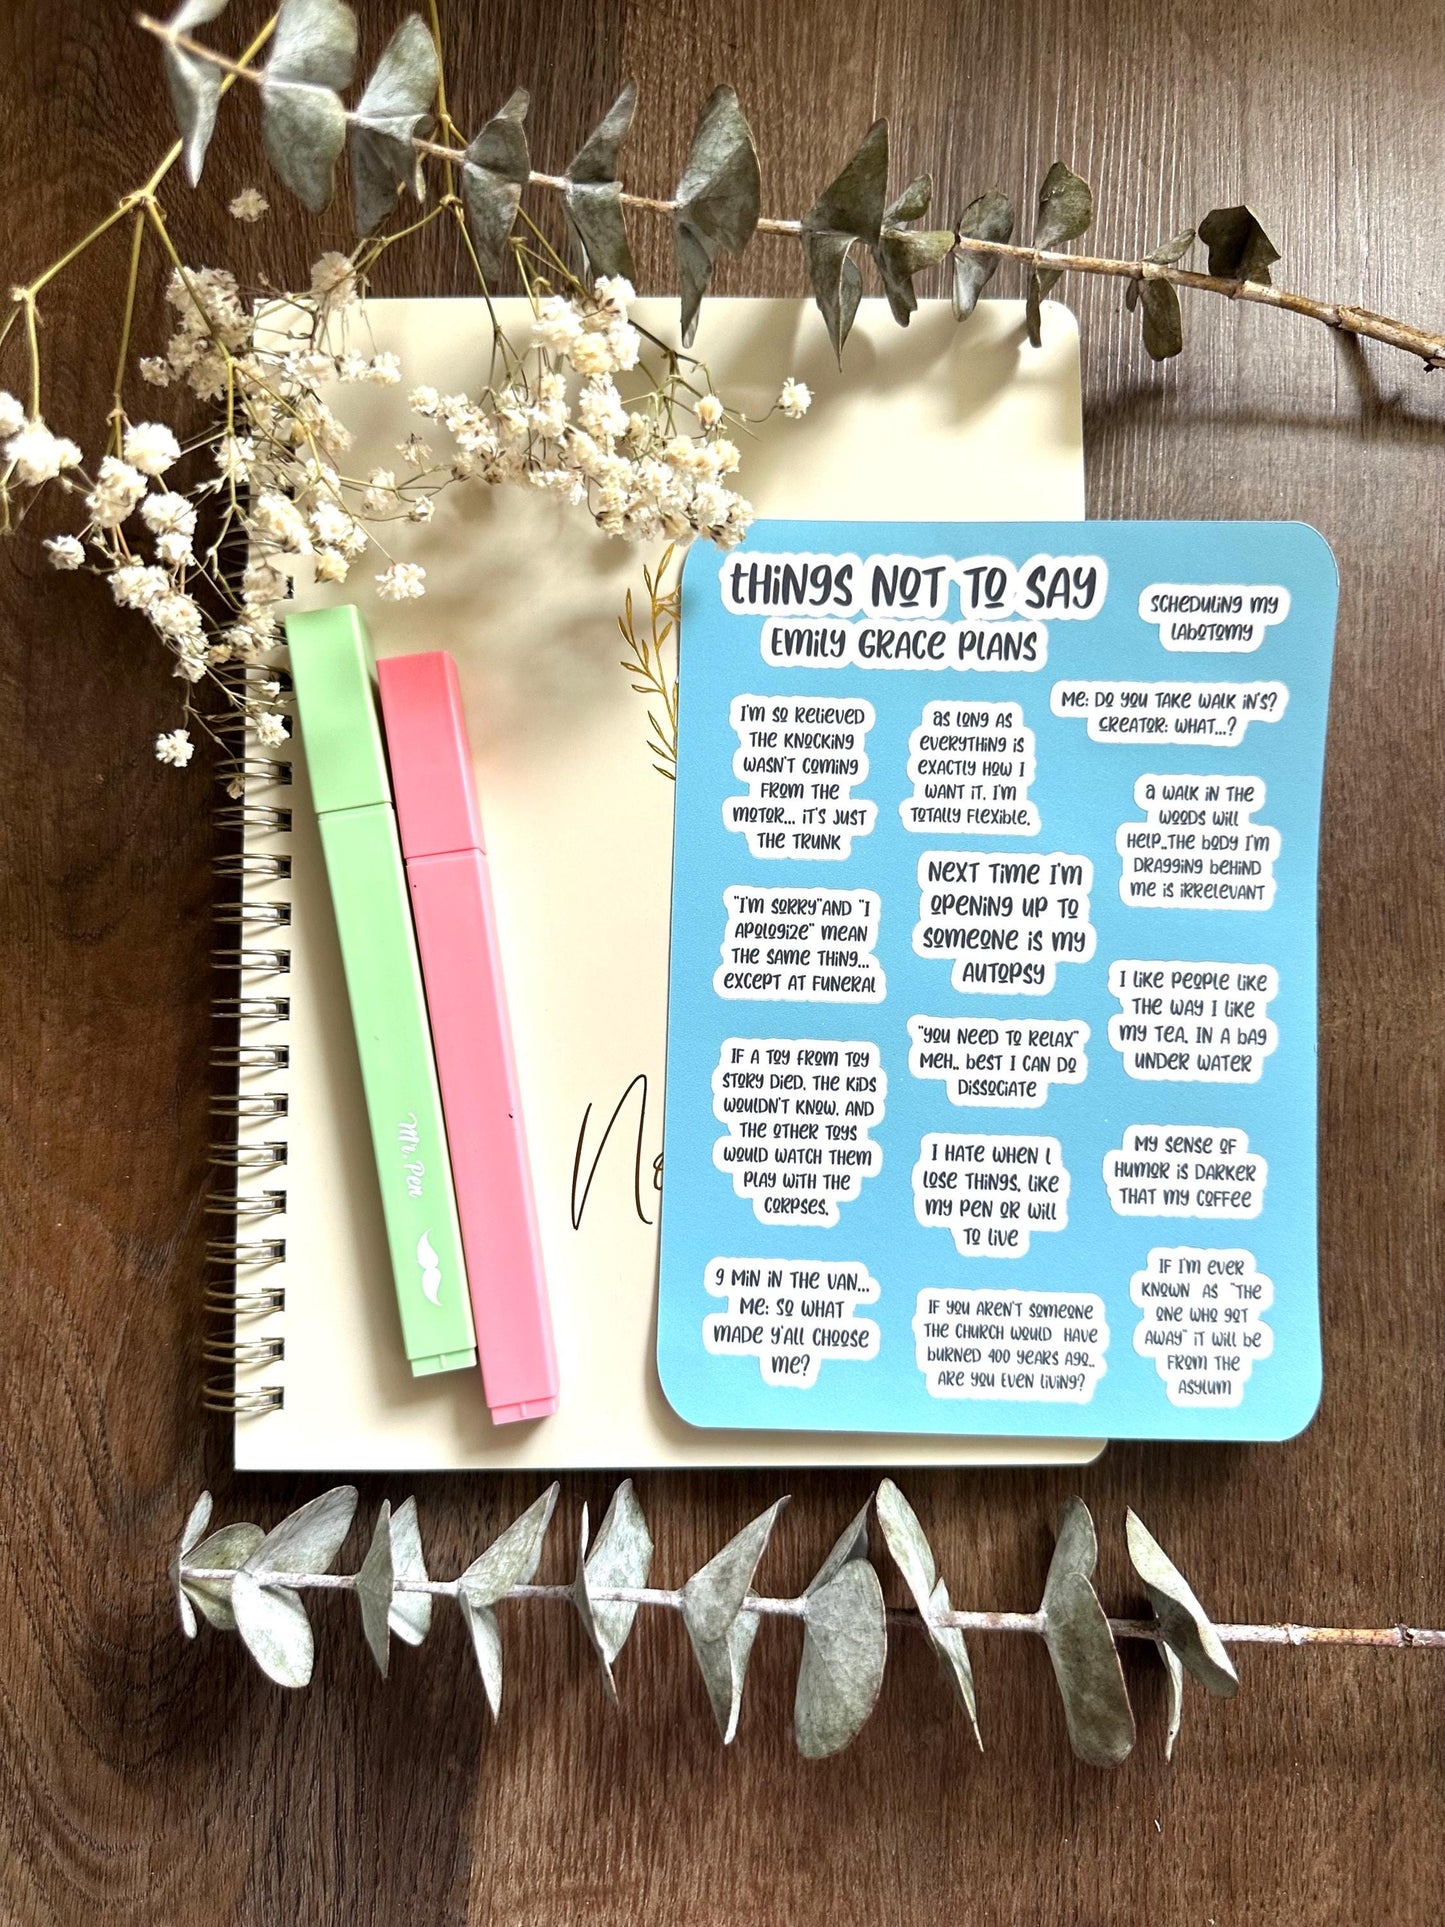 THINGS NOT TO SAY
EMILY GRACE PLANS
SCHEDULING MY
LABOTOMY
ME: DO YOU TAKE WALK IN'S?
CREATOR: WHAT...?
I'M SO RELIEVED
THE KNOCKING
WASN'T COMING
FROM THE
MOTOR... IT'S JUST
THE TRUNK
AS LONG AS
EVERYTHING IS
EXACTLY HOW I
WANT IT, I'M
TOTALLY FLEXIBLE.
A WALK IN THE
WOODS WILL
HELP..THE BODY I'M
DRAGGING BEHIND
ME IS IRRELEVANT
"I'M SORRY"AND "I
APOLOGIZE" MEAN
THE SAME THING...
EXCEPT AT FUNERAL
NEXT TIME I'M
OPENING UP TO
SOMEONE IS MY
AUTOPSY
I LIKE PEOPLE LIKE
THE WAY I LIKE
MY TEA, IN A BAG
UNDER WATER
IF A TOY FROM TOY
STORY DIED, THE KIDS
WOULDN'T KNOW, AND
THE OTHER TOYS
WOULD WATCH THEM
PLAY WITH THE
CORPSES.
"YOU NEED TO RELAX"
MEH.. BEST I CAN DO
DISSOCIATE
I HATE WHEN I
LOSE THINGS, LIKE
MY PEN OR WILL
TO LIVE
MY SENSE OF
HUMOR IS DARKER
THAT MY COFFEE
9 MIN IN THE VAN...
ME: SO WHAT
MADE Y'ALL CHOOSE
ME?
IF YOU AREN'T SOMEONE
THE CHURCH WOULD HAVE
BURNED 400 YEARS AGO..
ARE YOU EVEN LIVING?
IF I'M EVER
KNOWN AS "THE
ONE WHO GOT
AWAY" IT WILL BE
FROM THE
ASYLUM
Mr. Pen
No